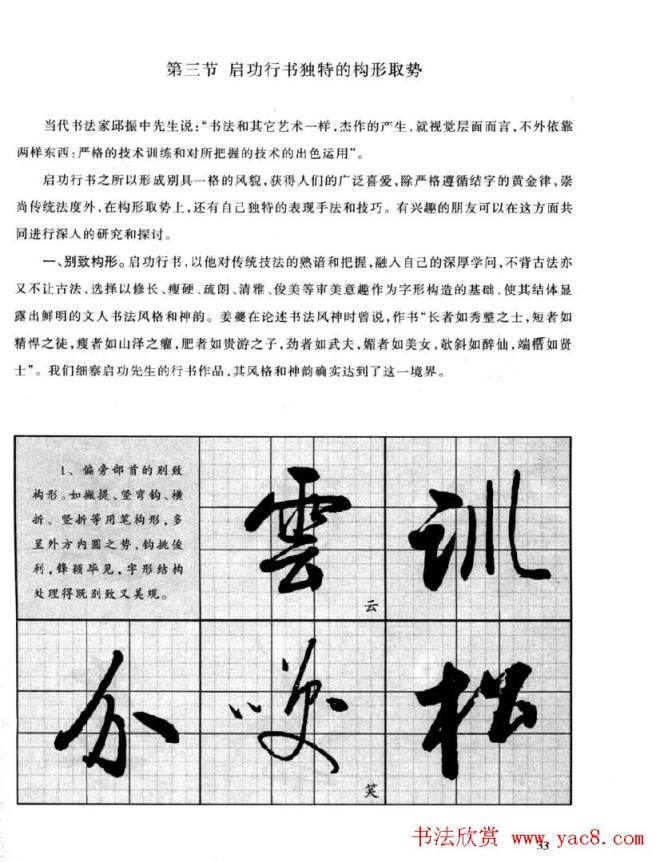 第三节 启功行书独特的构形取势
当代书法家邱振中先生说:“书法和其它艺术一样,杰作的产生,就视觉层面而言,不外依靠
两样东西:严格的技术训练和对所把握的技术的出色运用”。
启功行书之所以形成别具一格的风貌,获得人们的广泛喜爱,除严格遵循结字的黄金律,崇
尚传统法度外,在构形取势上,还有自己独特的表现手法和技巧。有兴趣的朋友可以在这方面共
同进行深入的研究和探讨。
一、别致构形。启功行书,以他对传统技法的熟谙和把握,融入自己的深厚学问,不背古法亦
又不让古法,选择以修长、瘦硬、疏朗、清雅、俊美等审美意趣作为字形构造的基础,使其结体显
露出鲜明的文人书法风格和神韵。姜夔在论述书法风神时曾说,作书“长者如秀整之士,短者如
精悍之徒,瘦者如山泽之癯,肥者如贵游之子,劲者如武夫,媚者如美女,欹斜如醉仙,端楷如贤
士”。我们细察启功先生的行书作品,其风格和神韵确实达到了这一境界。
1、偏旁部首的别致
构形。如撇提、竖弯钩、横
折、竖折等用笔构形,多
呈外方内圆之势,钩挑俊
利,锋颖毕见,字形结构
处理得既别致又美观。
雲
云
訓
分
咲
笑
松
书法欣赏 www.yac8.com
33